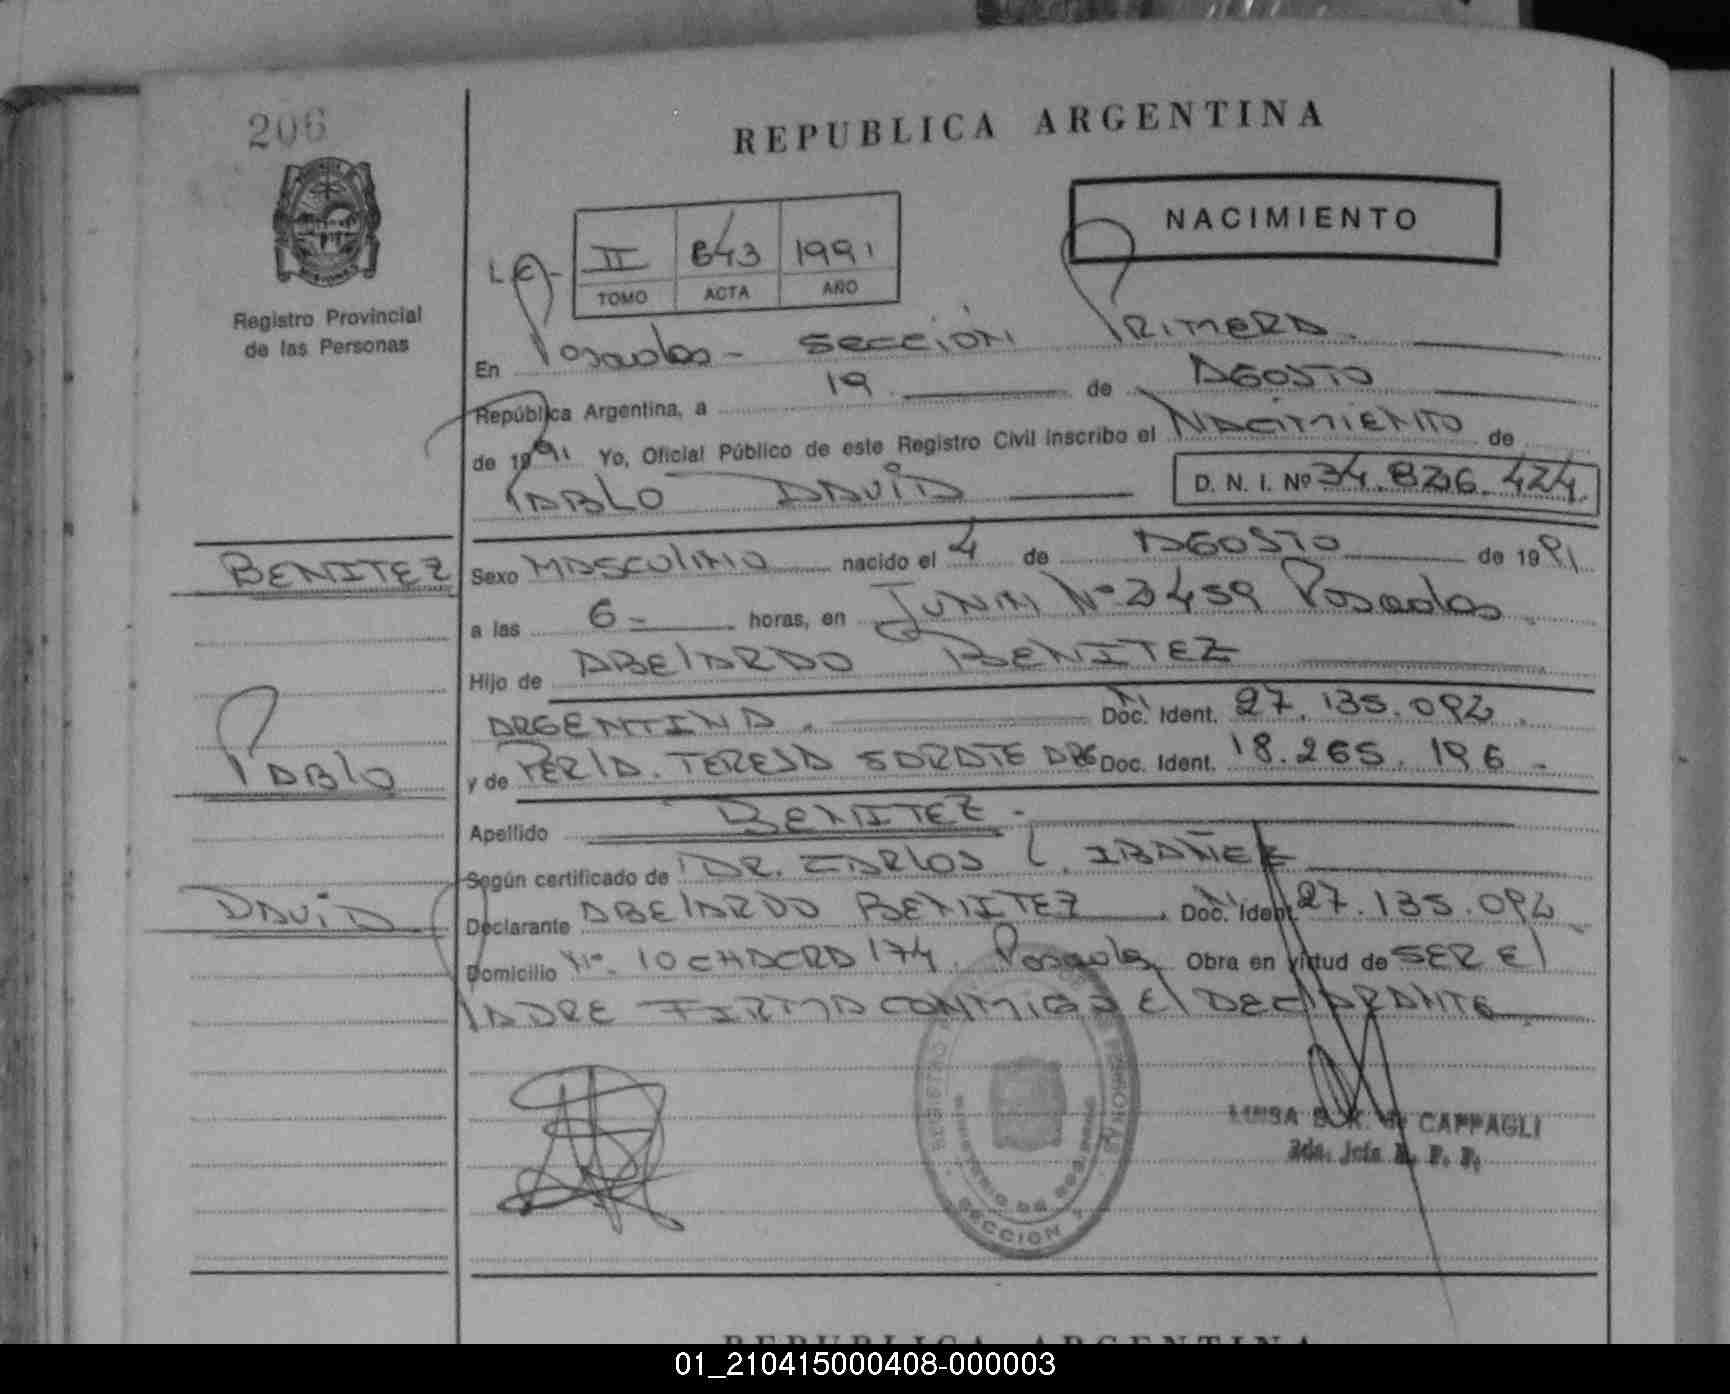 206
REPUBLICA ARGENTINA
NACIMIENTO
II 643 1991
TOMO ACTA AÑO
Registro Provincial
de las Personas
En Posadas - SECCION PRIMERA
República Argentina, a 19 de AGOSTO
de 1991 Yo, Oficial Público de este Registro Civil inscribo el NACIMIENTO de
PABLO DAVID D. N. I. Nº 34.826.424.
BENITEZ
Sexo MASCULINO nacido el 4 de AGOSTO de 1991
a las 6 - horas, en JUNIN Nº 2459 Posadas
Hijo de ABELARDO BENITEZ
ARGENTINA. Doc. Ident. 27.135.092.
PABLO
y de PERLA TERESA SORATE ARG Doc. Ident. 18.265.196 -
Apellido BENITEZ -
Según certificado de DR. CARLOS L. IBAÑEZ
DAVID
Declarante ABELARDO BENITEZ Doc. Ident. 27.135.092
Domicilio Nº 10 CHACRA 174 Posadas Obra en virtud de SER EL
PADRE FIRMA CONMIGO EL DECLARANTE
REGISTRO PERSONAS
MINISTERIO DE GOBIERNO
SECCION 1
LUISA CAPPAGLI
2da. Jefa R. P. P.
REPUBLICA ARGENTINA
01_210415000408-000003